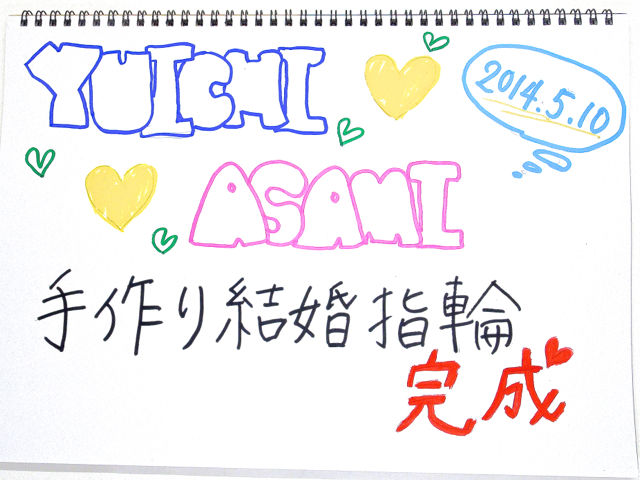 YUICHI
2014.5.10
ASAMI
手作り結婚指輪
完成